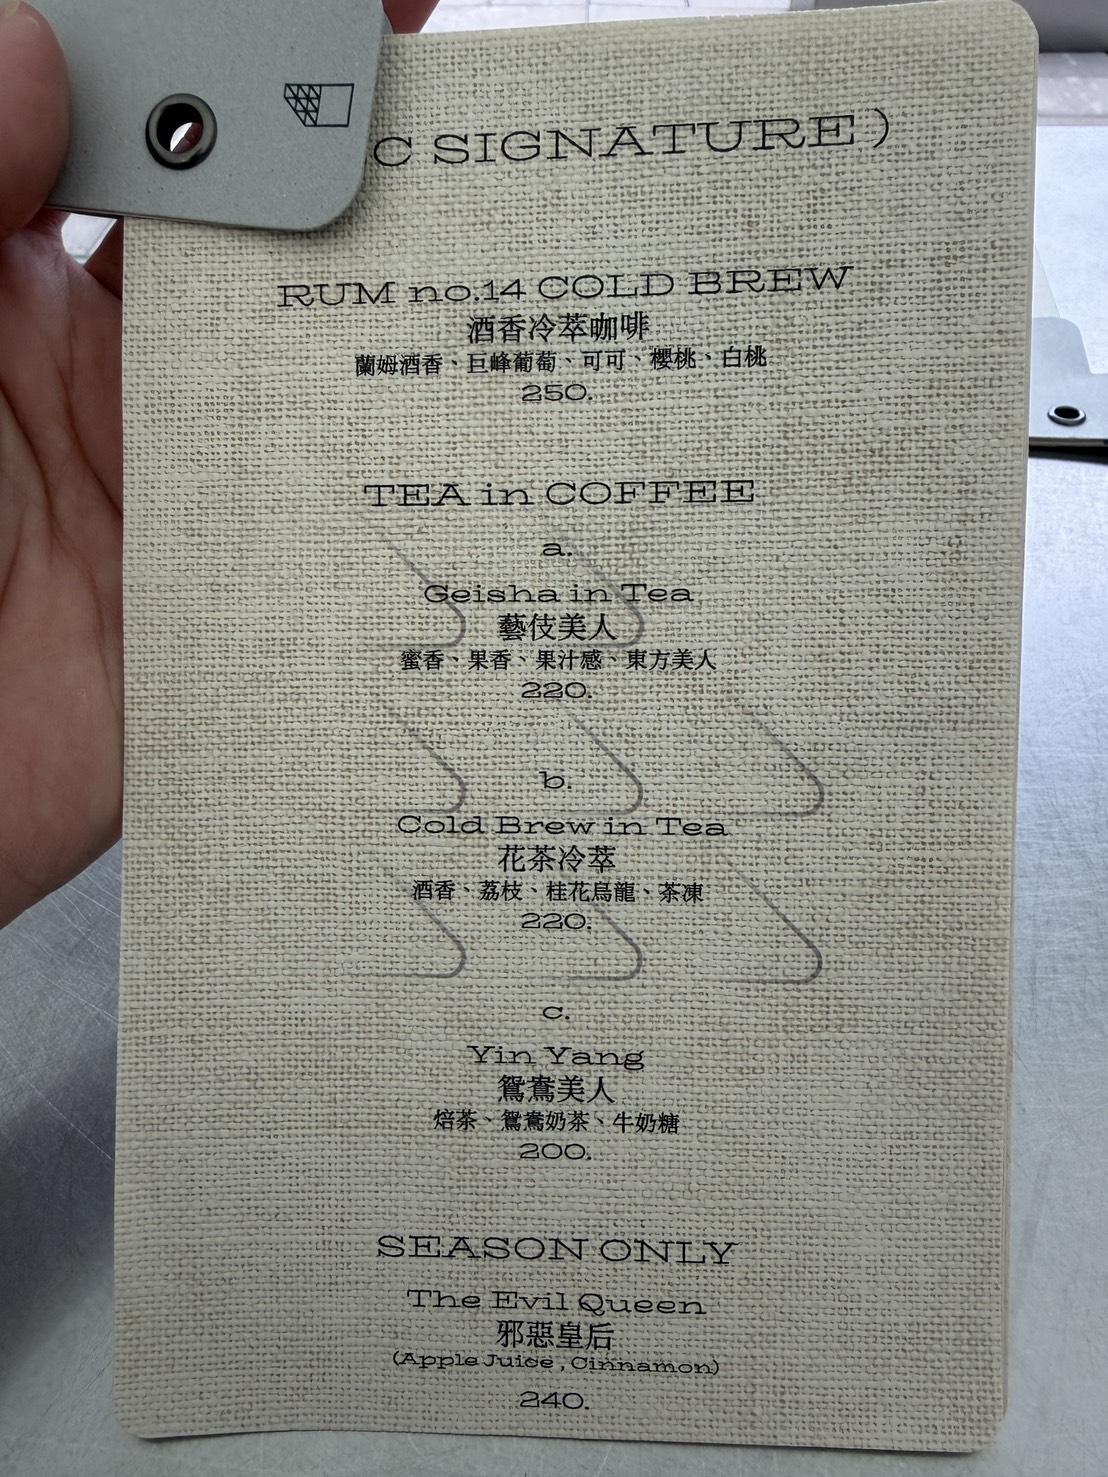 C SIGNATURE )
RUM no.14 COLD BREW
酒香冷萃咖啡
蘭姆酒香、巨峰葡萄、可可、櫻桃、白桃
250.
TEA in COFFEE
a.
Geisha in Tea
藝伎美人
蜜香、果香、果汁感、東方美人
220.
b.
Cold Brew in Tea
花茶冷萃
酒香、荔枝、桂花烏龍、茶凍
220.
c.
Yin Yang
鴛鴦美人
焙茶、鴛鴦奶茶、牛奶糖
200.
SEASON ONLY
The Evil Queen
邪惡皇后
(Apple Juice , Cinnamon)
240.